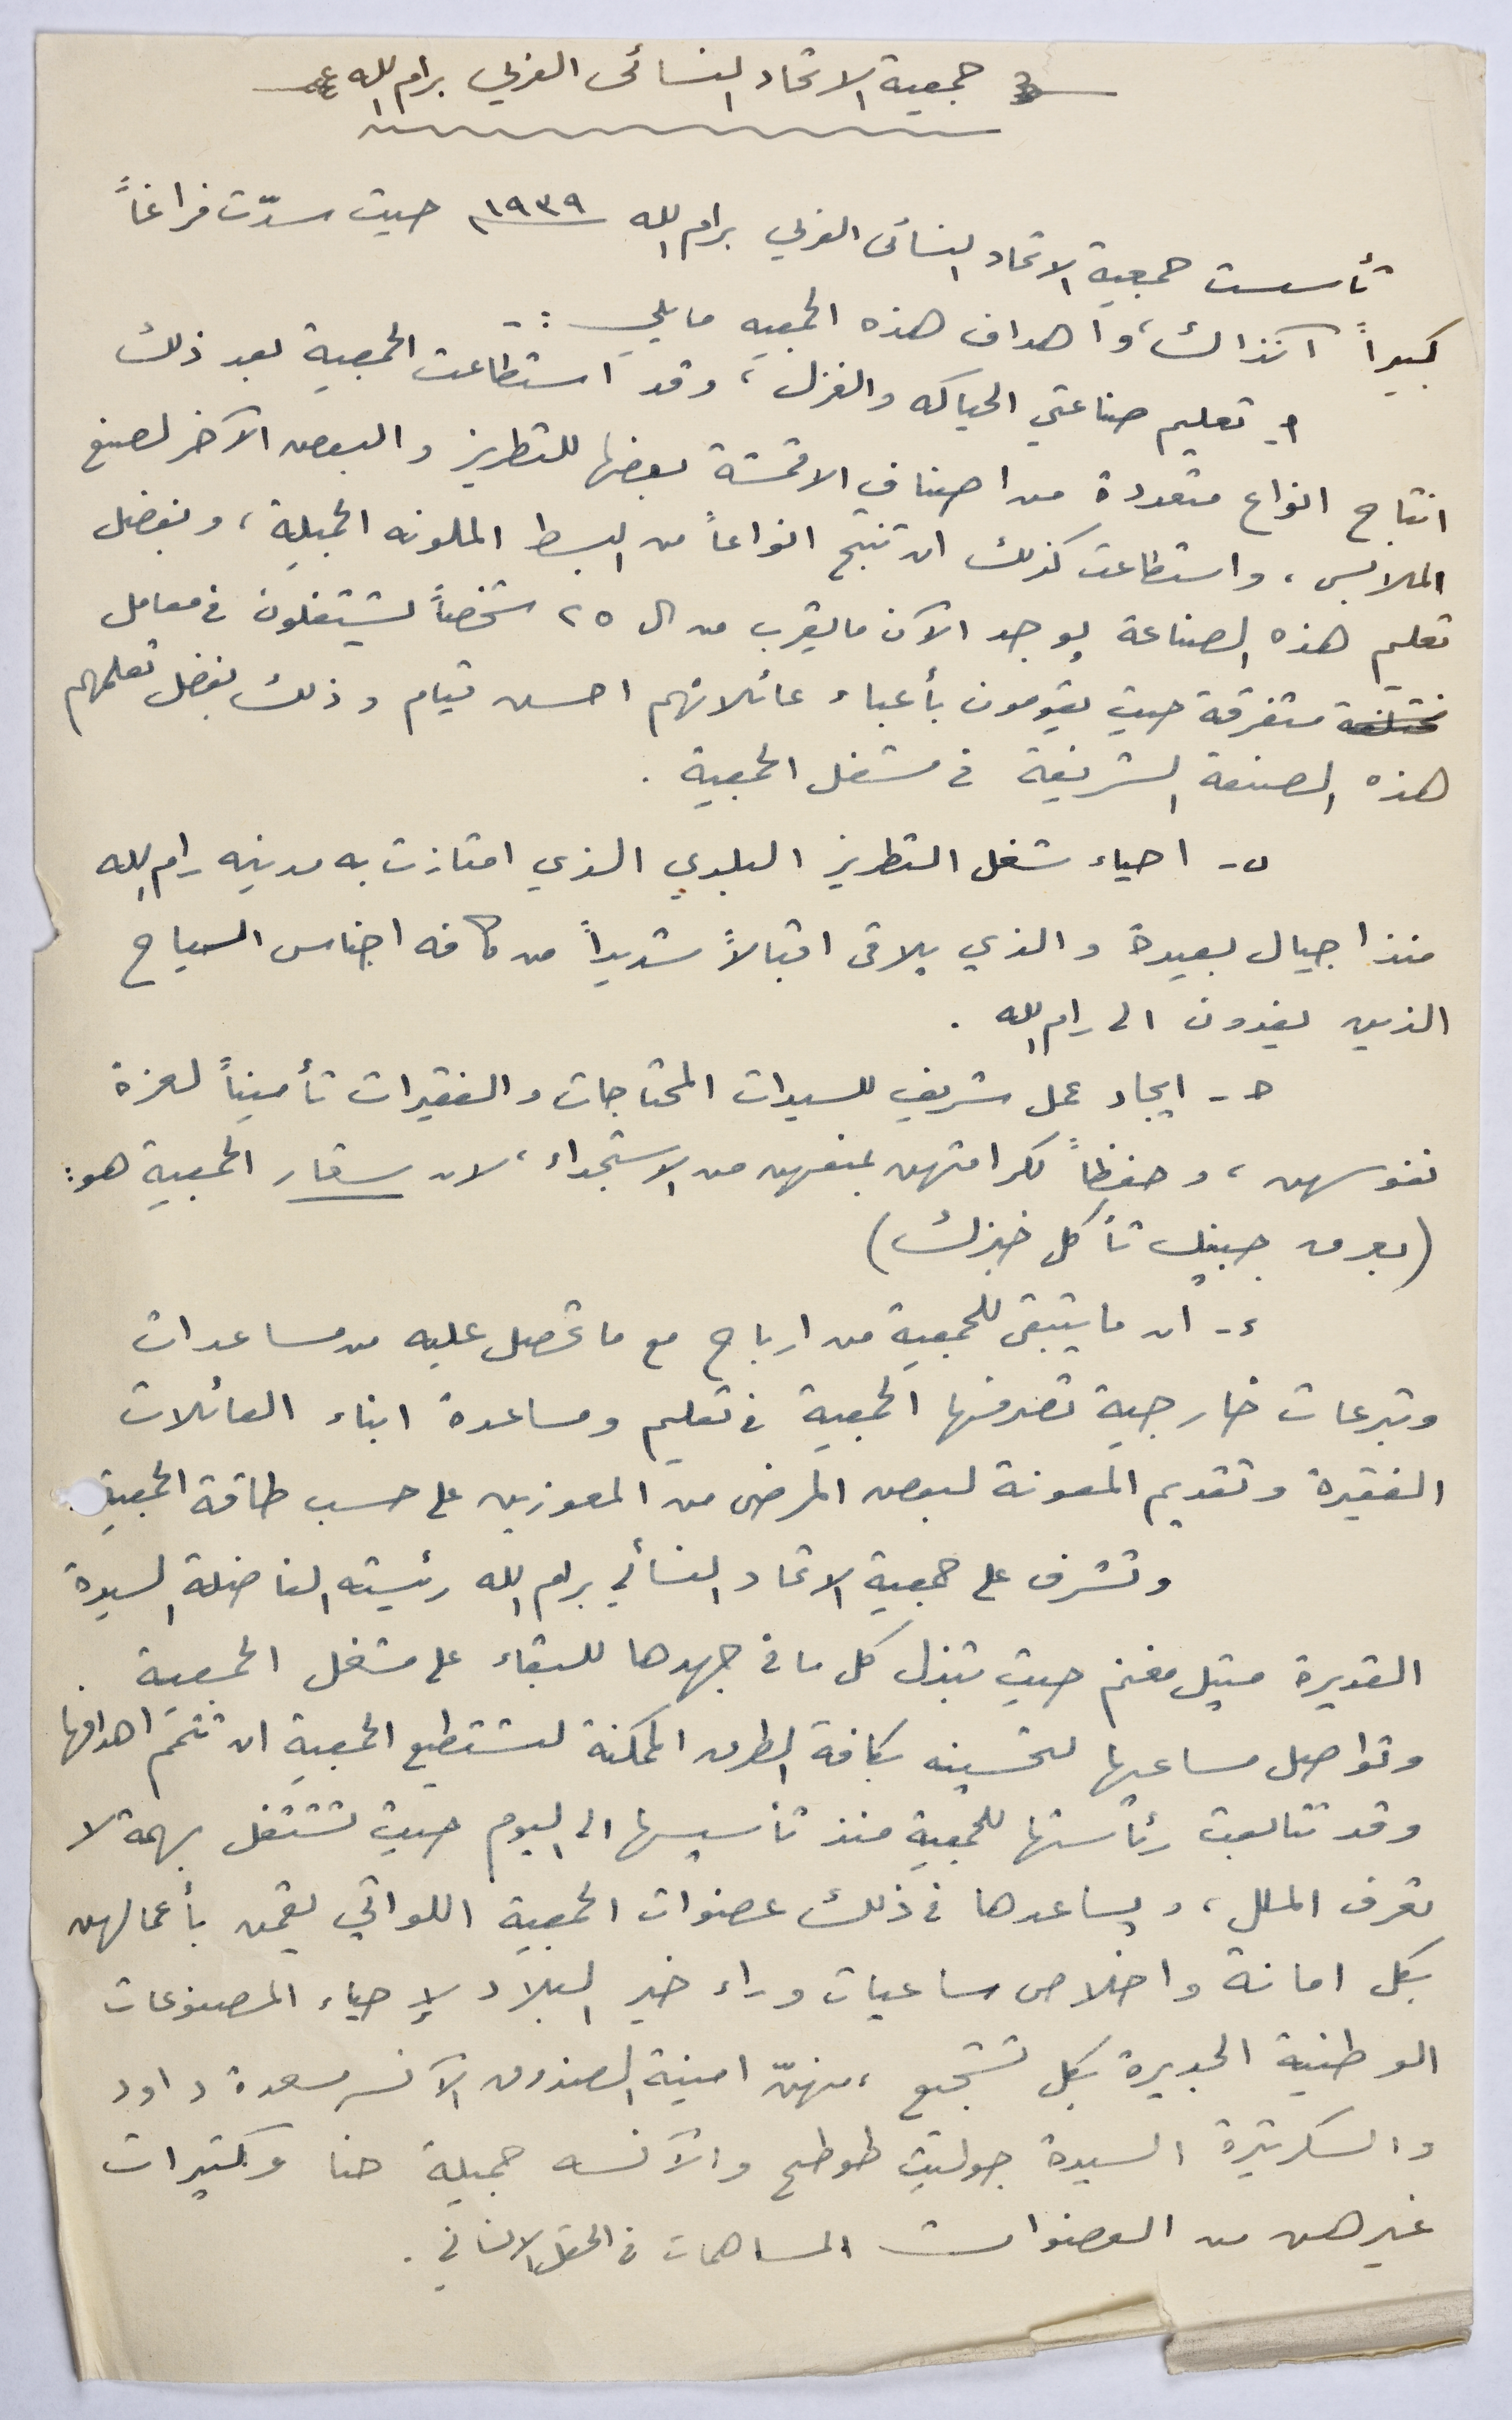 جمعية الاتحاد النسائي العربي برام الله
تأسست جمعية الاتحاد النسائي العربي برام الله ١٩٣٩ حيث سدّت فراغاً
كبيراً آنذاك، وأهداف هذه الجمعيه ما يلي :-
أ- تعليم صناعتي الحياكه والغزل، وقد استطاعت الجمعية بعد ذلك
انتاج انواع متعددة من اصناف الاقمشة بعضها للتطريز والبعض الآخر لصنع
الملابس، واستطاعت كذلك ان تنتج انواعاً من البسط الملونه الجميلة، وبفضل
تعليم هذه الصناعة يوجد الآن ما يقرب من ال ٢٥ شخصاً يشتغلون في معامل
مختلفة متفرقة حيث يقومون بأعباء عائلاتهم احسن قيام وذلك بفضل تعلمهم
هذه الصنعة الشريفة في مشغل الجمعية .
ب- احياء شغل التطريز البلدي الذي امتازت به مدينه رام الله
منذ اجيال بعيدة والذي يلاقى اقبالاً شديداً من كافه اجناس السياح
الذين يفدون الى رام الله .
ج- ايجاد عمل شريف للسيدات المحتاجات والفقيرات تأميناً لعزة
نفوسهن، وحفظاً لكرامتهن بمنعهن من الاستجداء، لان شعار الجمعية هو:
(بعرق جبينك تأكل خبزك)
د- ان ما يتبقى للجمعية من ارباح مع ما تحصل عليه من مساعدات
وتبرعات خارجية تصرفها الجمعية في تعليم ومساعدة ابناء العائلات
الفقيرة وتقديم المعونة لبعض المرضى من المعوزين على حسب طاقة الجمعية
وتشرف على جمعية الاتحاد النسائي برام الله رئيسته الفاضلة السيدة
القديرة ميتيل مغنم حيث تبذل كل ما في جهدها للبقاء على مشغل الجمعية
وتواصل مساعيها لتحسينه بكافة الطرق الممكنة لتستطيع الجمعية ان تتمّم اهدافها
وقد تتابعت رئاستها للجمعية منذ تأسيسها الى اليوم حيث تشتغل بهمة لا
تعرف الملل، ويساعدها في ذلك عضوات الجمعية اللواتي يقمن بأعمالهن
بكل امانة واخلاص ساعيات وراء خير البلاد لإحياء المصنوعات
الوطنية الجديرة بكل تشجيع، منهنّ امينة الصندوق الآنسه سعدة داود
والسكرتيرة السيدة جولييت طوطح والآنسه جميلة حنا وكثيرات
غيرهن من العضوات المساهمات في الحقل الانساني .